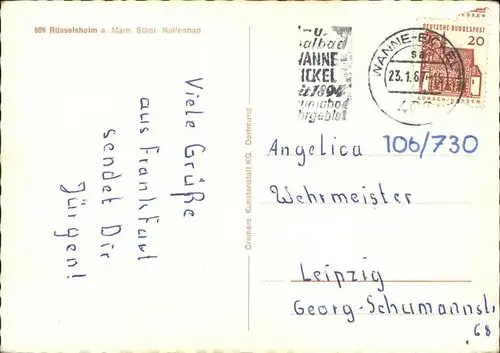 609 Rüsselsheim a. Main. Städt. Hallenbad
Viele Grüße
aus Frankfurt
sendet Dir
Jürgen!
Cramers Kunstanstalt KG. Dortmund
WANNE
ICKEL
1894
WANNE-EICKEL
23.1.67
DEUTSCHE BUNDESPOST
20
LORSCH/HESSEN
106/730
Angelica
Wehrmeister
Leipzig
Georg-Schumannstr.
68